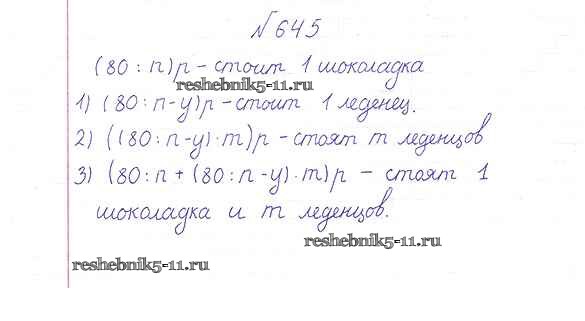 № 645
(80 : n) р – стоит 1 шоколадка
reshebnik5-11.ru
1) (80 : n - y) р – стоит 1 леденец.
2) ((80 : n - y) · m) р – стоят m леденцов
3) (80 : n + (80 : n - y) · m) р – стоят 1
шоколадка и m леденцов.
reshebnik5-11.ru
reshebnik5-11.ru